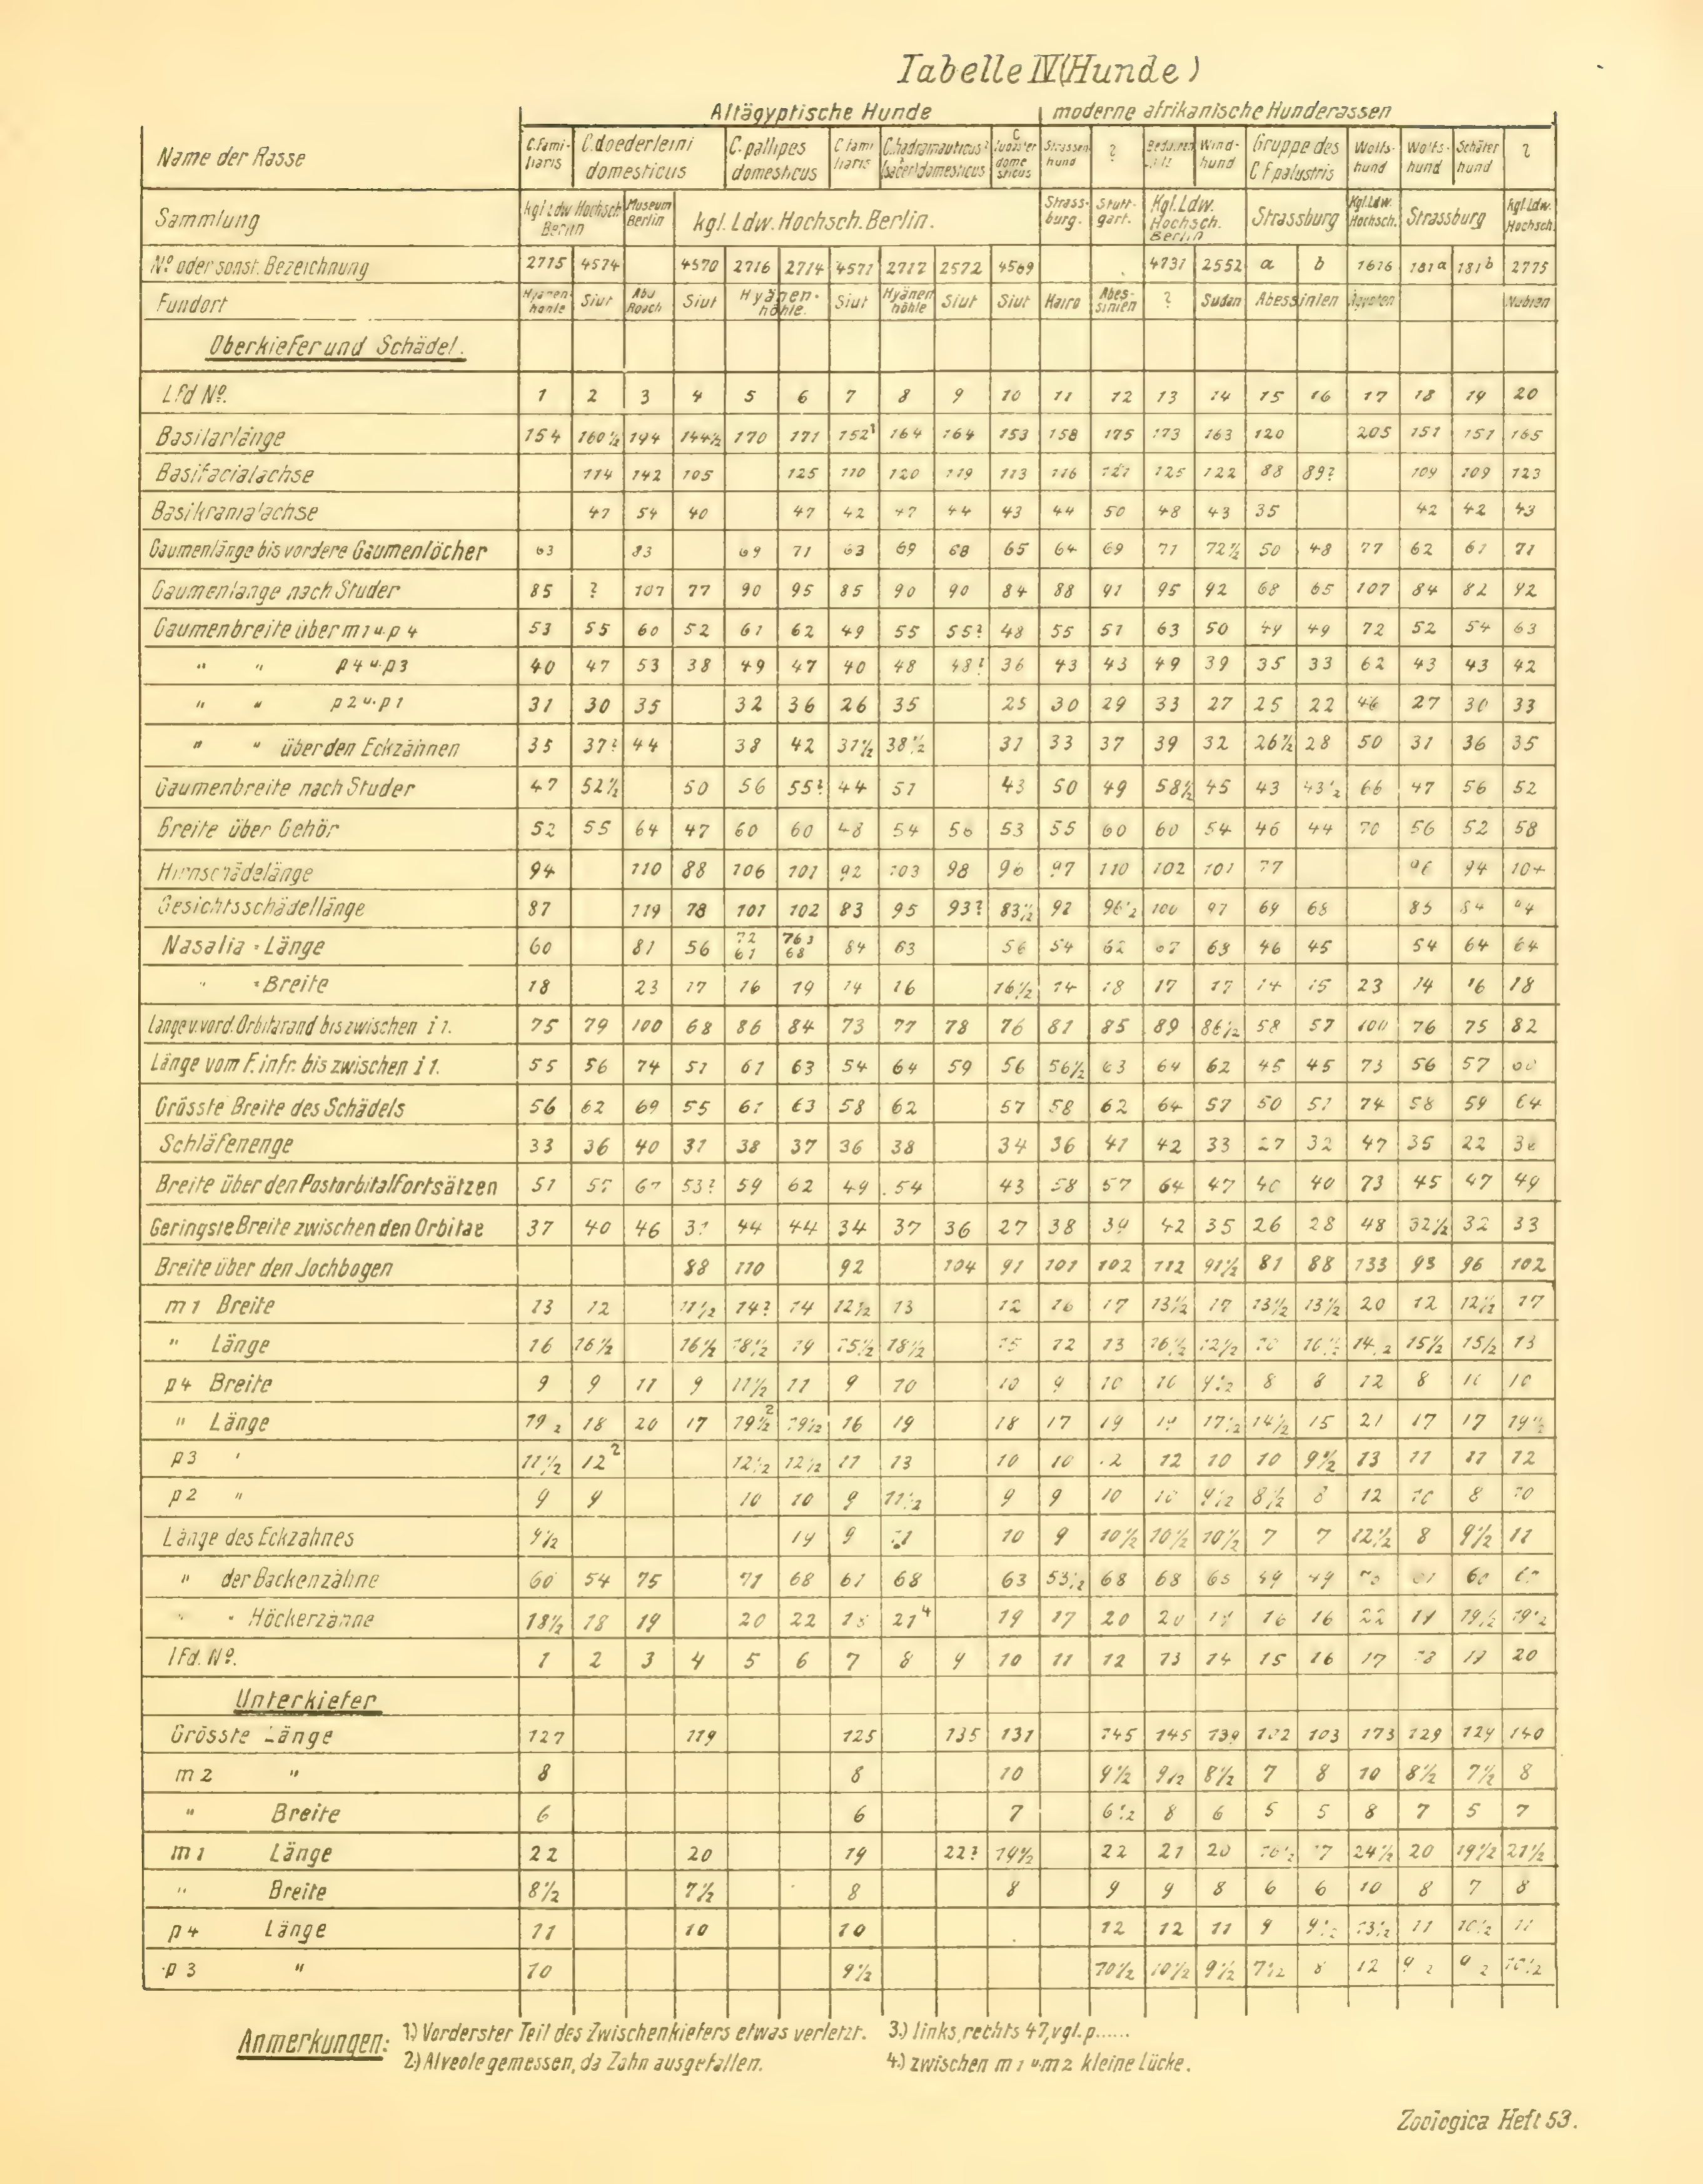 Tabelle IV (Hunde)
Altägyptische Hunde moderne afrikanische Hunderassen
Name der Rasse C. fami- liaris C. doederleini domesticus C. pallipes domesticus C fami liaris C. hadramauticus? (sacer) domesticus C dome sticus Strassen hund ? Wind- hund Gruppe des C F palustris Wolfs- hund Wolfs- hund Schäfer hund ?
Sammlung kgl Ldw Hochsch Berlin Museum Berlin kgl. Ldw. Hochsch. Berlin. Strass- burg. Stutt- gart. Kgl. Ldw. Hochsch. Berlin Strassburg Kgl. Ldw. Hochsch. Strassburg kgl. Ldw. Hochsch.
Nº oder sonst. Bezeichnung 2715 4574 4570 2716 2714 4571 2712 2572 4569 4731 2552 a b 1616 181a 181b 2775
Fundort Hyänen- höhle Siut Abu Roasch Siut Hyänen- höhle. Siut Hyänen höhle Siut Siut Kairo Abes- sinien ? Sudan Abessinien Ägypten Nubien
Oberkiefer und Schädel.
Lfd Nº. 1 2 3 4 5 6 7 8 9 10 11 12 13 14 15 16 17 18 19 20
Basilarlänge 154 160½ 194 144½ 170 171 152¹ 164 164 153 158 175 173 163 120 205 151 151 165
Basifacialachse 114 142 105 125 110 120 119 113 116 121 125 122 88 89? 109 109 123
Basikranialachse 47 54 40 47 42 47 44 43 44 50 48 43 35 42 42 43
Gaumenlänge bis vordere Gaumenlöcher 63 83 69 71 63 69 68 65 64 69 71 72½ 50 48 77 62 61 71
Gaumenlänge nach Studer 85 ? 107 77 90 95 85 90 90 84 88 91 95 92 68 65 107 84 82 92
Gaumenbreite über m1 u. p4 53 55 60 52 61 62 49 55 55? 48 55 51 63 50 49 49 72 52 54 63
" " p4 u. p3 40 47 53 38 49 47 40 48 48? 36 43 43 49 39 35 33 62 43 43 42
" " p2 u. p1 31 30 35 32 36 26 35 25 30 29 33 27 25 22 46 27 30 33
" " über den Eckzähnen 35 37? 44 38 42 31½ 38½ 31 33 37 39 32 26½ 28 50 31 36 35
Gaumenbreite nach Studer 47 52½ 50 56 55? 44 51 43 50 49 58½ 45 43 43½ 66 47 56 52
Breite über Gehör 52 55 64 47 60 60 48 54 56 53 55 60 60 54 46 44 70 56 52 58
Hirnschädelänge 94 110 88 106 101 92 103 98 96 97 110 102 101 77 96 94 104
Gesichtsschädellänge 87 119 78 101 102 83 95 93? 83½ 92 96½ 100 97 69 68 85 84 94
Nasalia - Länge 60 81 56 72 61 76 3 68 84 63 56 54 62 67 63 46 45 54 64 64
" - Breite 18 23 17 16 19 14 16 16½ 14 18 17 17 14 15 23 14 16 18
Länge v. vord. Orbitarand bis zwischen i 1. 75 79 100 68 86 84 73 77 78 76 81 85 89 86½ 58 57 100 76 75 82
Länge vom F. infr. bis zwischen i 1. 55 56 74 51 61 63 54 64 59 56 56½ 63 64 62 45 45 73 56 57
Grösste Breite des Schädels 56 62 69 55 61 63 58 62 57 58 62 64 57 50 51 74 58 59 64
Schläfenenge 33 36 40 31 38 37 36 38 34 36 41 42 33 27 32 47 35 22
Breite über den Postorbitalfortsätzen 51 67 53? 59 62 49 54 43 58 57 64 47 40 40 73 45 47 49
Geringste Breite zwischen den Orbitae 37 40 46 31 44 44 34 37 36 27 38 39 42 35 26 28 48 32½ 32 33
Breite über den Jochbogen 88 110 92 104 91 101 102 112 91½ 81 88 133 93 96 102
m1 Breite 13 12 11½ 14? 14 12½ 13 12 16 17 13½ 17 13½ 13½ 20 12 12½ 17
" Länge 16 16½ 16½ 18½ 19 15½ 18½ 15 12 13 16½ 12½ 10 10½ 14½ 15½ 15½ 13
p4 Breite 9 9 11 9 11½ 11 9 10 10 9 10 10 9½ 8 8 12 8 10 10
" Länge 19½ 18 20 17 19½² 19½ 16 19 18 17 19 19 17½ 14½ 15 21 17 17 19½
p3 " 11½ 12² 12½ 12½ 11 13 10 10 12 12 10 10 9½ 13 11 11 12
p2 " 9 9 10 10 9 11½ 9 9 10 10 9½ 8½ 8 12 10 8 10
Länge des Eckzahnes 9½ 19 9 11 10 9 10½ 10½ 10½ 7 7 12½ 8 9½ 11
" der Backenzähne 60 54 75 71 68 61 68 63 53½ 68 68 65 49 49 60
" " Höckerzähne 18½ 18 19 20 22 18 21⁴ 19 17 20 20 19 16 16 22 19 19½ 19½
lfd. Nº. 1 2 3 4 5 6 7 8 9 10 11 12 13 14 15 16 17 18 19 20
Unterkiefer
Grösste Länge 127 119 125 135 131 145 145 139 102 103 173 129 124 140
m2 " 8 8 10 9½ 9½ 8½ 7 8 10 8½ 7½ 8
" Breite 6 6 7 6½ 8 6 5 5 8 7 5 7
m1 Länge 22 20 19 22? 19½ 22 21 20 16½ 17 24½ 20 19½ 21½
" Breite 8½ 7½ 8 8 9 9 8 6 6 10 8 7 8
p4 Länge 11 10 10 12 12 11 9 9½ 13½ 11 10½ 11
p3 " 10 9½ 10½ 10½ 9½ 7½ 8 12 9½ 9½ 10½
Anmerkungen: 1) Vorderster Teil des Zwischenkiefers etwas verletzt. 3.) links, rechts 47, vgl. p......
2) Alveole gemessen, da Zahn ausgefallen. 4.) zwischen m1 u. m2 kleine Lücke.
Zoologica Heft 53.